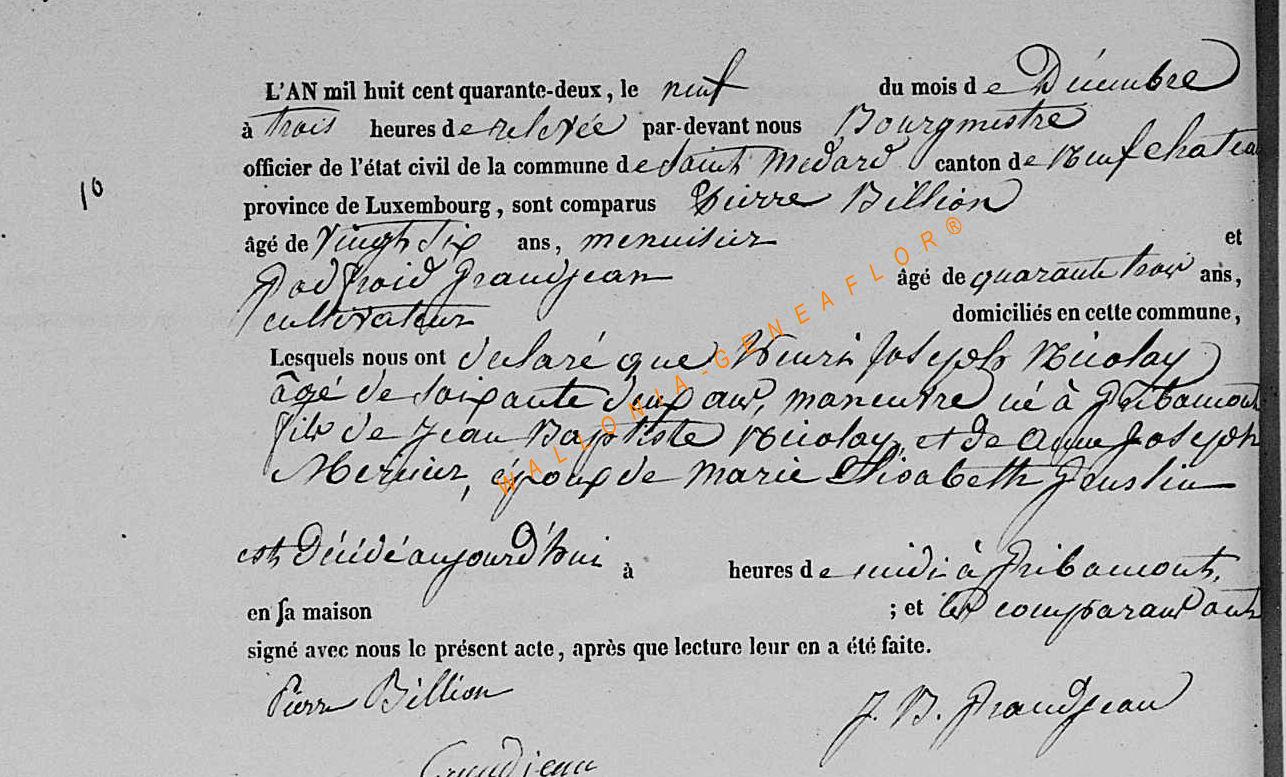 L'AN mil huit cent quarante-deux, le neuf du mois de Décembre
à trois heures de relevée par-devant nous Bourgmestre
officier de l'état civil de la commune de Saint Médard canton de Neufchatea
10
province de Luxembourg, sont comparus Pierre Billion
âgé de vingt six ans, menuisier et
Godfroid Grandjean âgé de quarante trois ans,
cultivateur domiciliés en cette commune,
Lesquels nous ont déclaré que Henri Joseph Nicolay
âgé de soixante deux ans, manœuvre né à Gribomont
fils de Jean Baptiste Nicolay, et de Anne Joseph
Mernier, époux de Marie Elisabeth
est décédé aujourd'hui à heures de midi à Gribomont,
en sa maison ; et les comparans ont
signé avec nous le présent acte, après que lecture leur en a été faite.
Pierre Billion J. B. Grandjean
Grandjean
WALLONIA-GENEAFLOR®